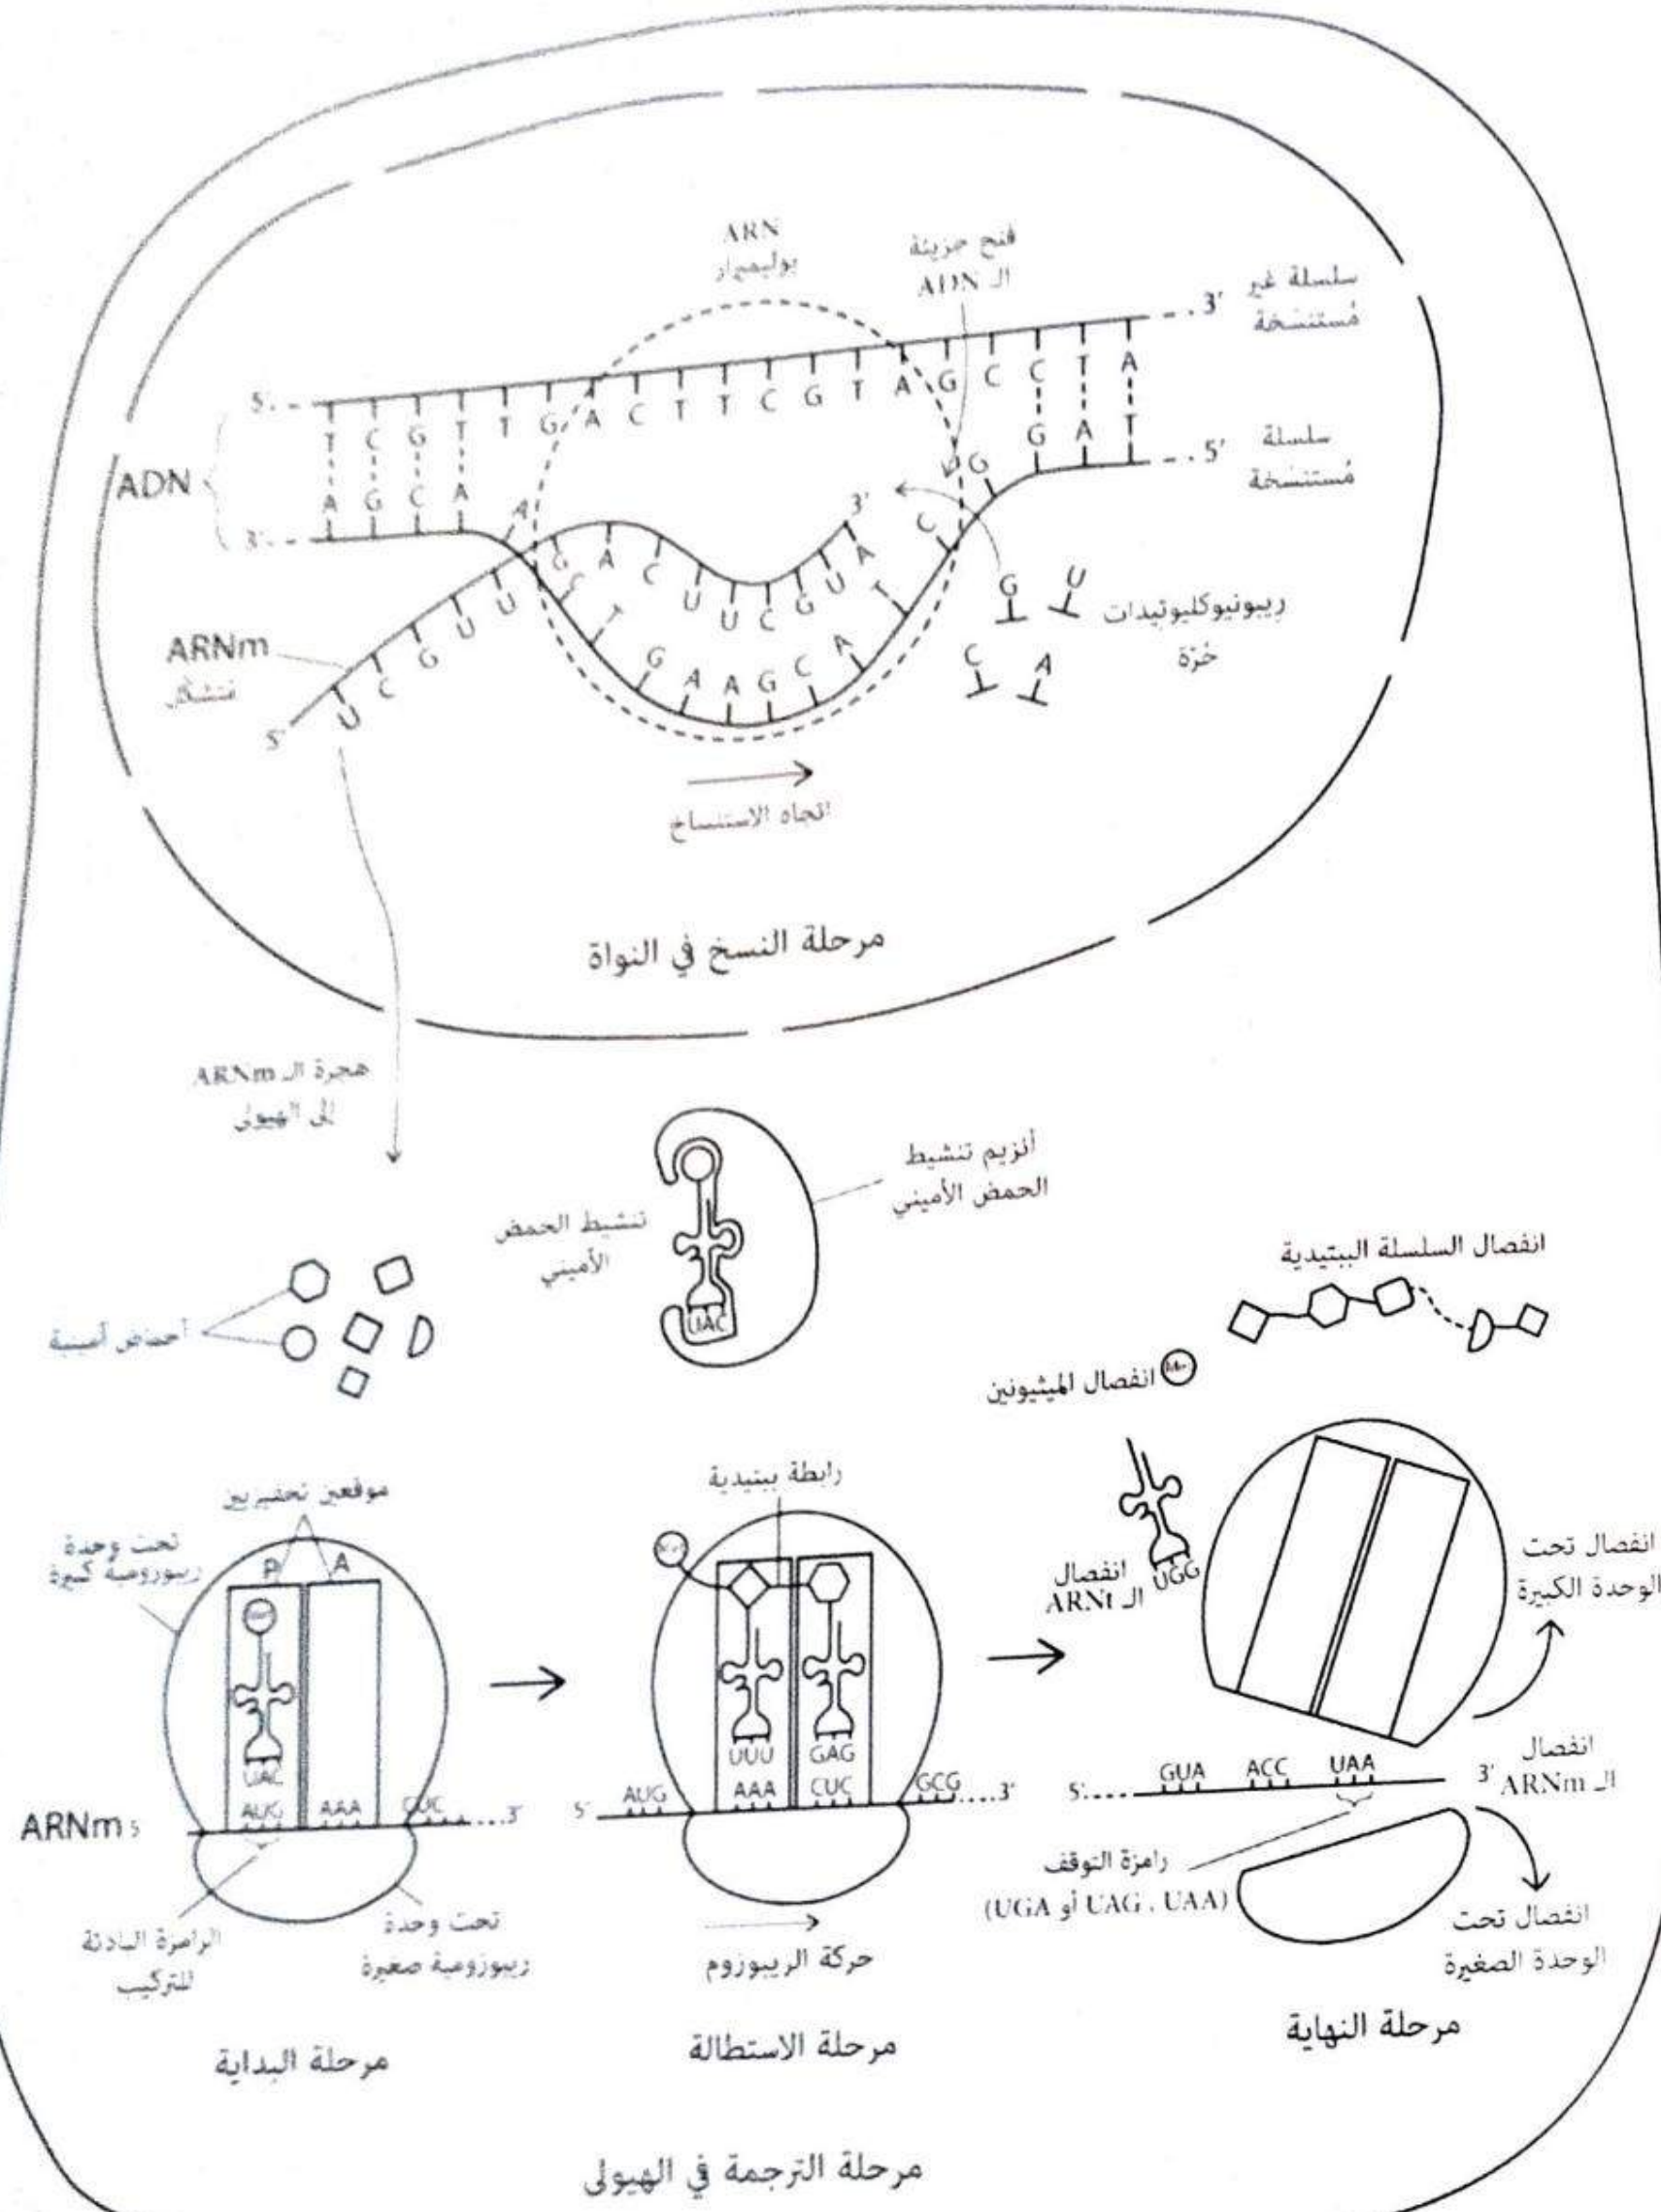 ARN
بوليميراز
فتح جزيئة
الـ ADN
سلسلة غير
مُستنسَخة
5'
3'
T C G T T G A C T T C G T A G C C T A
ADN
A G C A A C T G A A G C A T C G G A T
3'
5'
سلسلة
مُستنسَخة
3'
U C G U U G A C U U C G U A
5'
ARNm
متشكل
G U
C A
ريبونيوكليوتيدات
حُرّة
اتجاه الاستنساخ
مرحلة النسخ في النواة
هجرة الـ ARNm
إلى الهيولى
أنزيم تنشيط
الحمض الأميني
تنشيط الحمض
الأميني
UAC
أحماض أمينية
انفصال السلسلة الببتيدية
انفصال الميثيونين
Met
موقعين تحفيزيين
تحت وحدة
ريبوزومية كبيرة
P A
Met
UAC
ARNm 5'
AUG AAA CUC
....3'
الرامزة البادئة
للتركيب
تحت وحدة
ريبوزومية صغيرة
مرحلة البداية
رابطة ببتيدية
Met
UUU GAG
5'
AUG AAA CUC GCG
....3'
حركة الريبوزوم
مرحلة الاستطالة
انفصال
الـ ARNt
UGG
انفصال تحت
الوحدة الكبيرة
5'....
GUA ACC UAA
3'
انفصال
الـ ARNm
رامزة التوقف
(UGA أو UAG . UAA)
انفصال تحت
الوحدة الصغيرة
مرحلة النهاية
مرحلة الترجمة في الهيولى